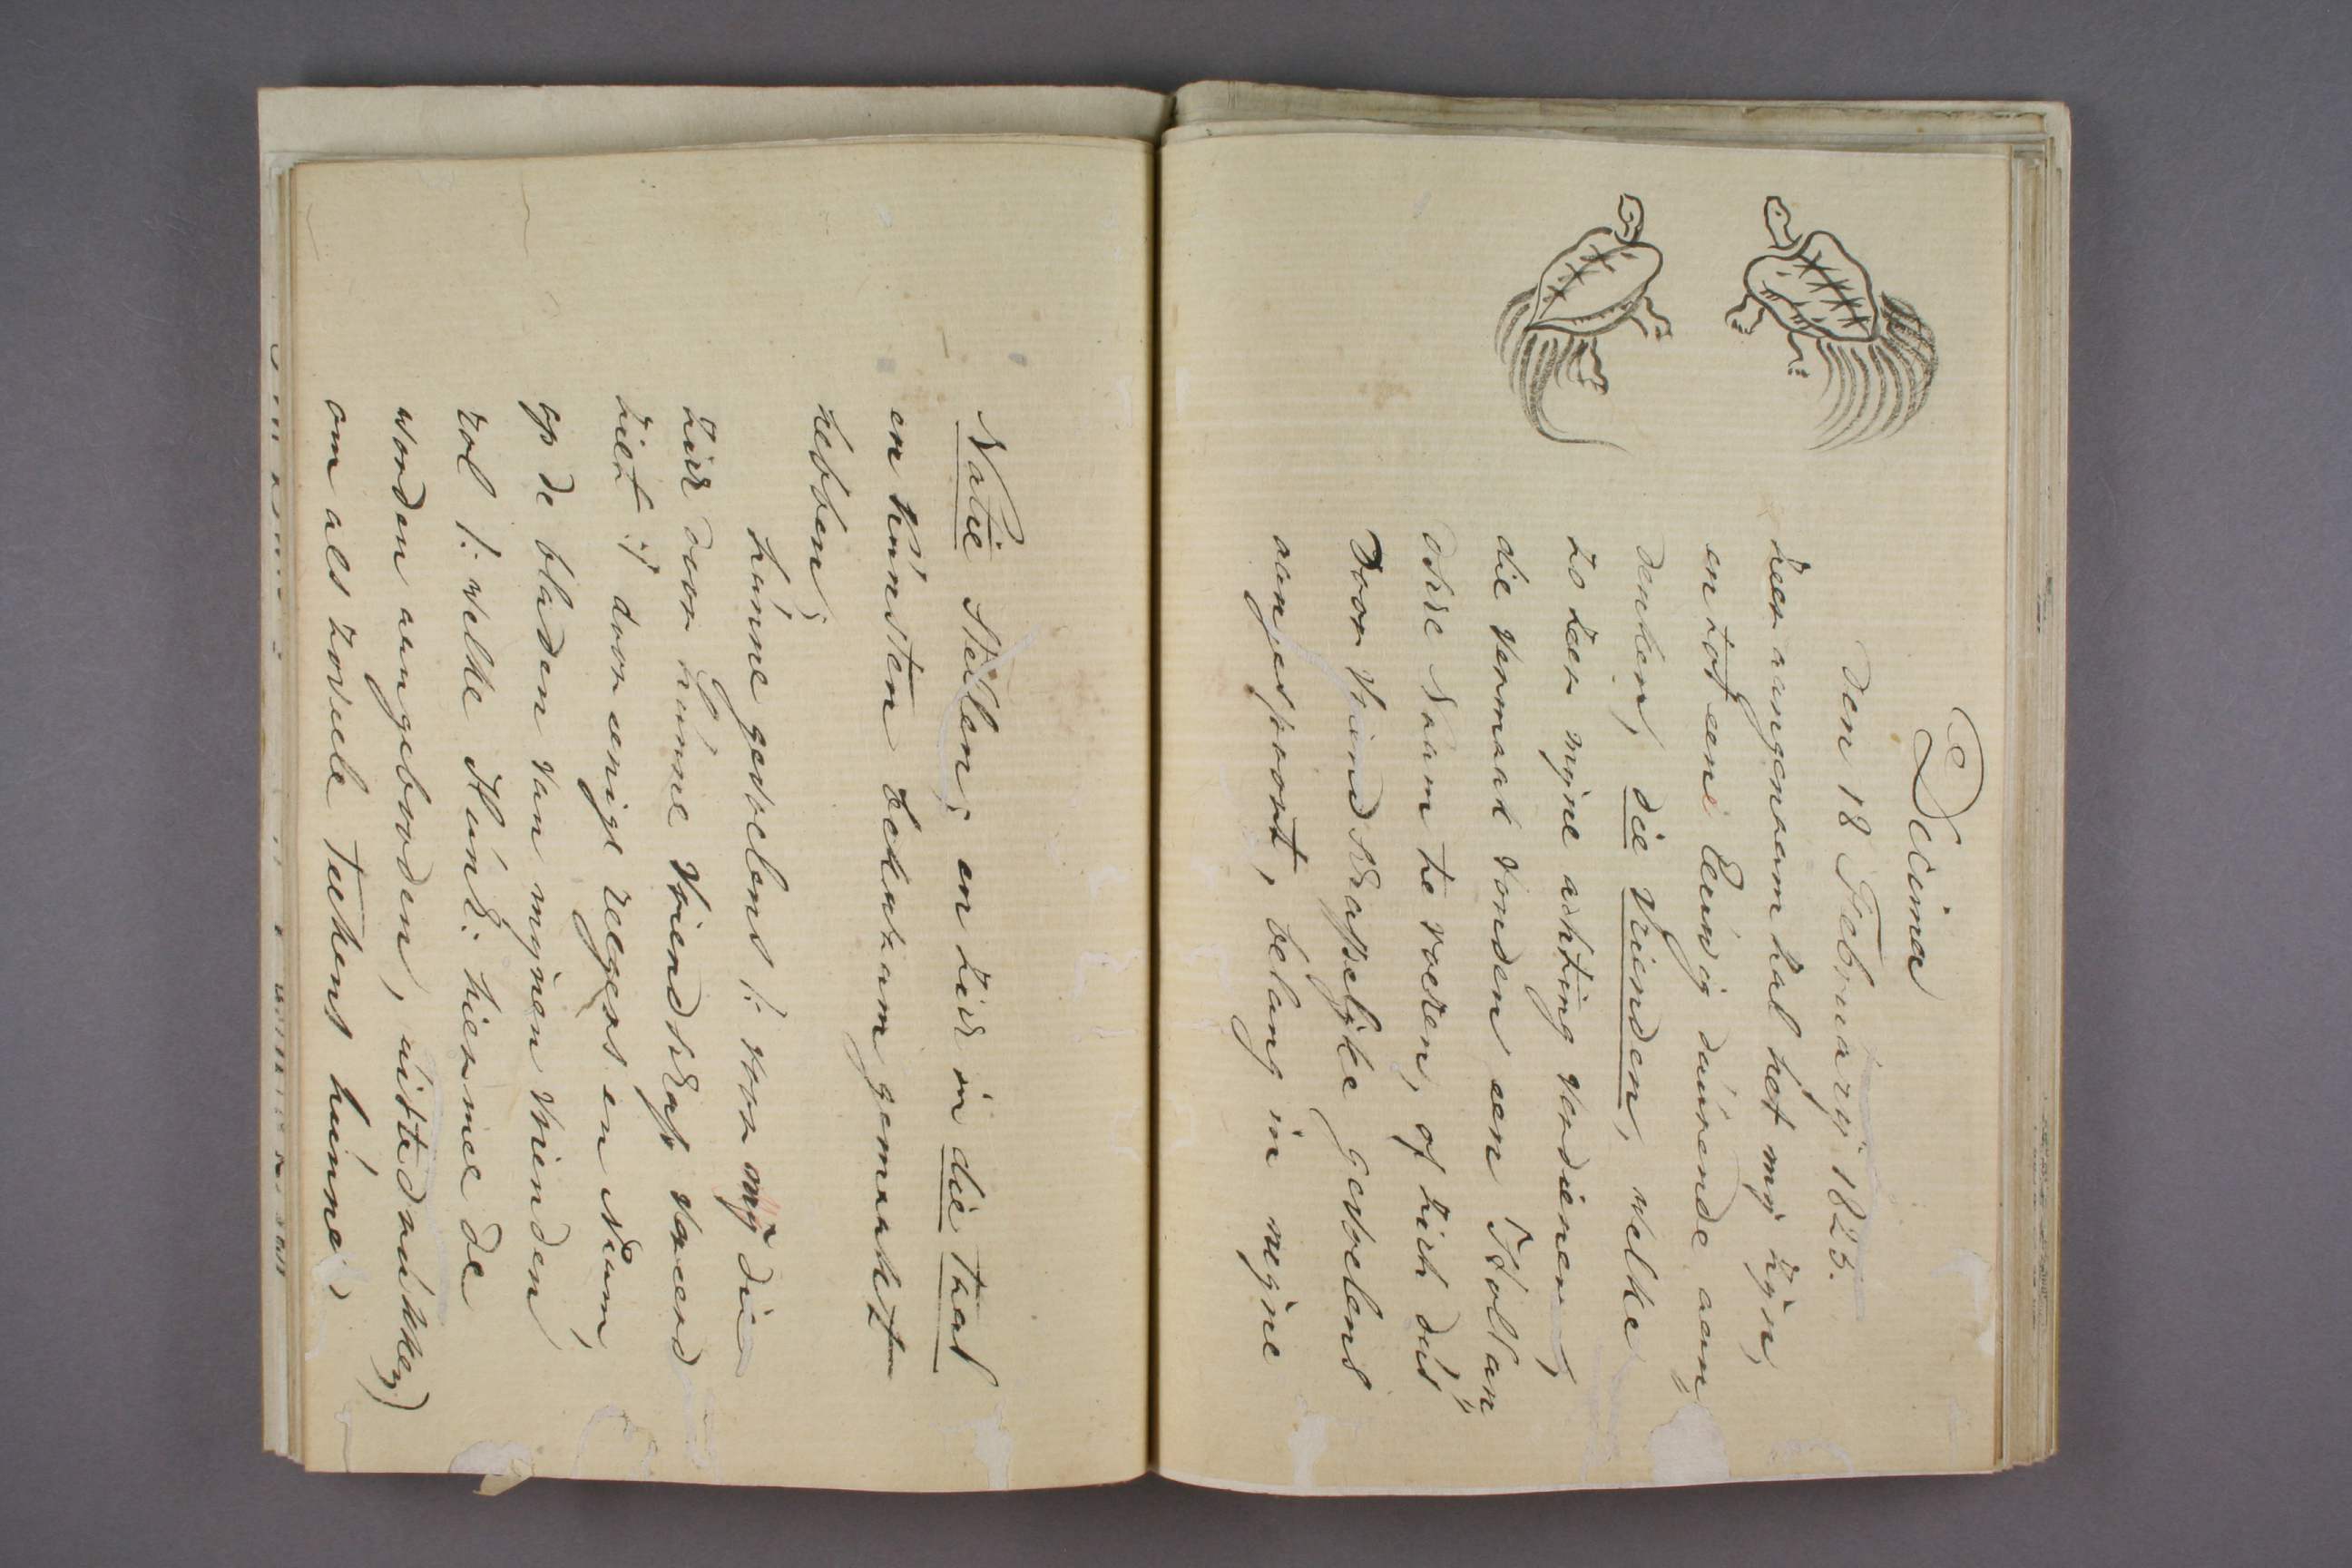 Decima
den 18 Februarij 1823.
Zeer aangenaam zal het mij zijn,
en tot eene Eeuwig duúrende aan„
denken, die Vrienden, welke
zo zeer mijne achting verdienen,
die vermaak vonden een Hollan„
dsche Naam te voeren, of zich dús
door vriendschappelijke gevoelens
aangespoort, belang in mijne
Natie stellen; en zich in die Taal
en kúnsten bekwaam gemaakt
hebben;
húnne gevoelens /: voor mij die
zich door húnne Vriendschap vereerd
ziet :/ door eenige regels en Naam,
op de bladen van mijnen vrienden
rol /: welke Húns: hiermee de
worden aangebooden, uitedrúkken)
om als zoveele Tekens húnne,